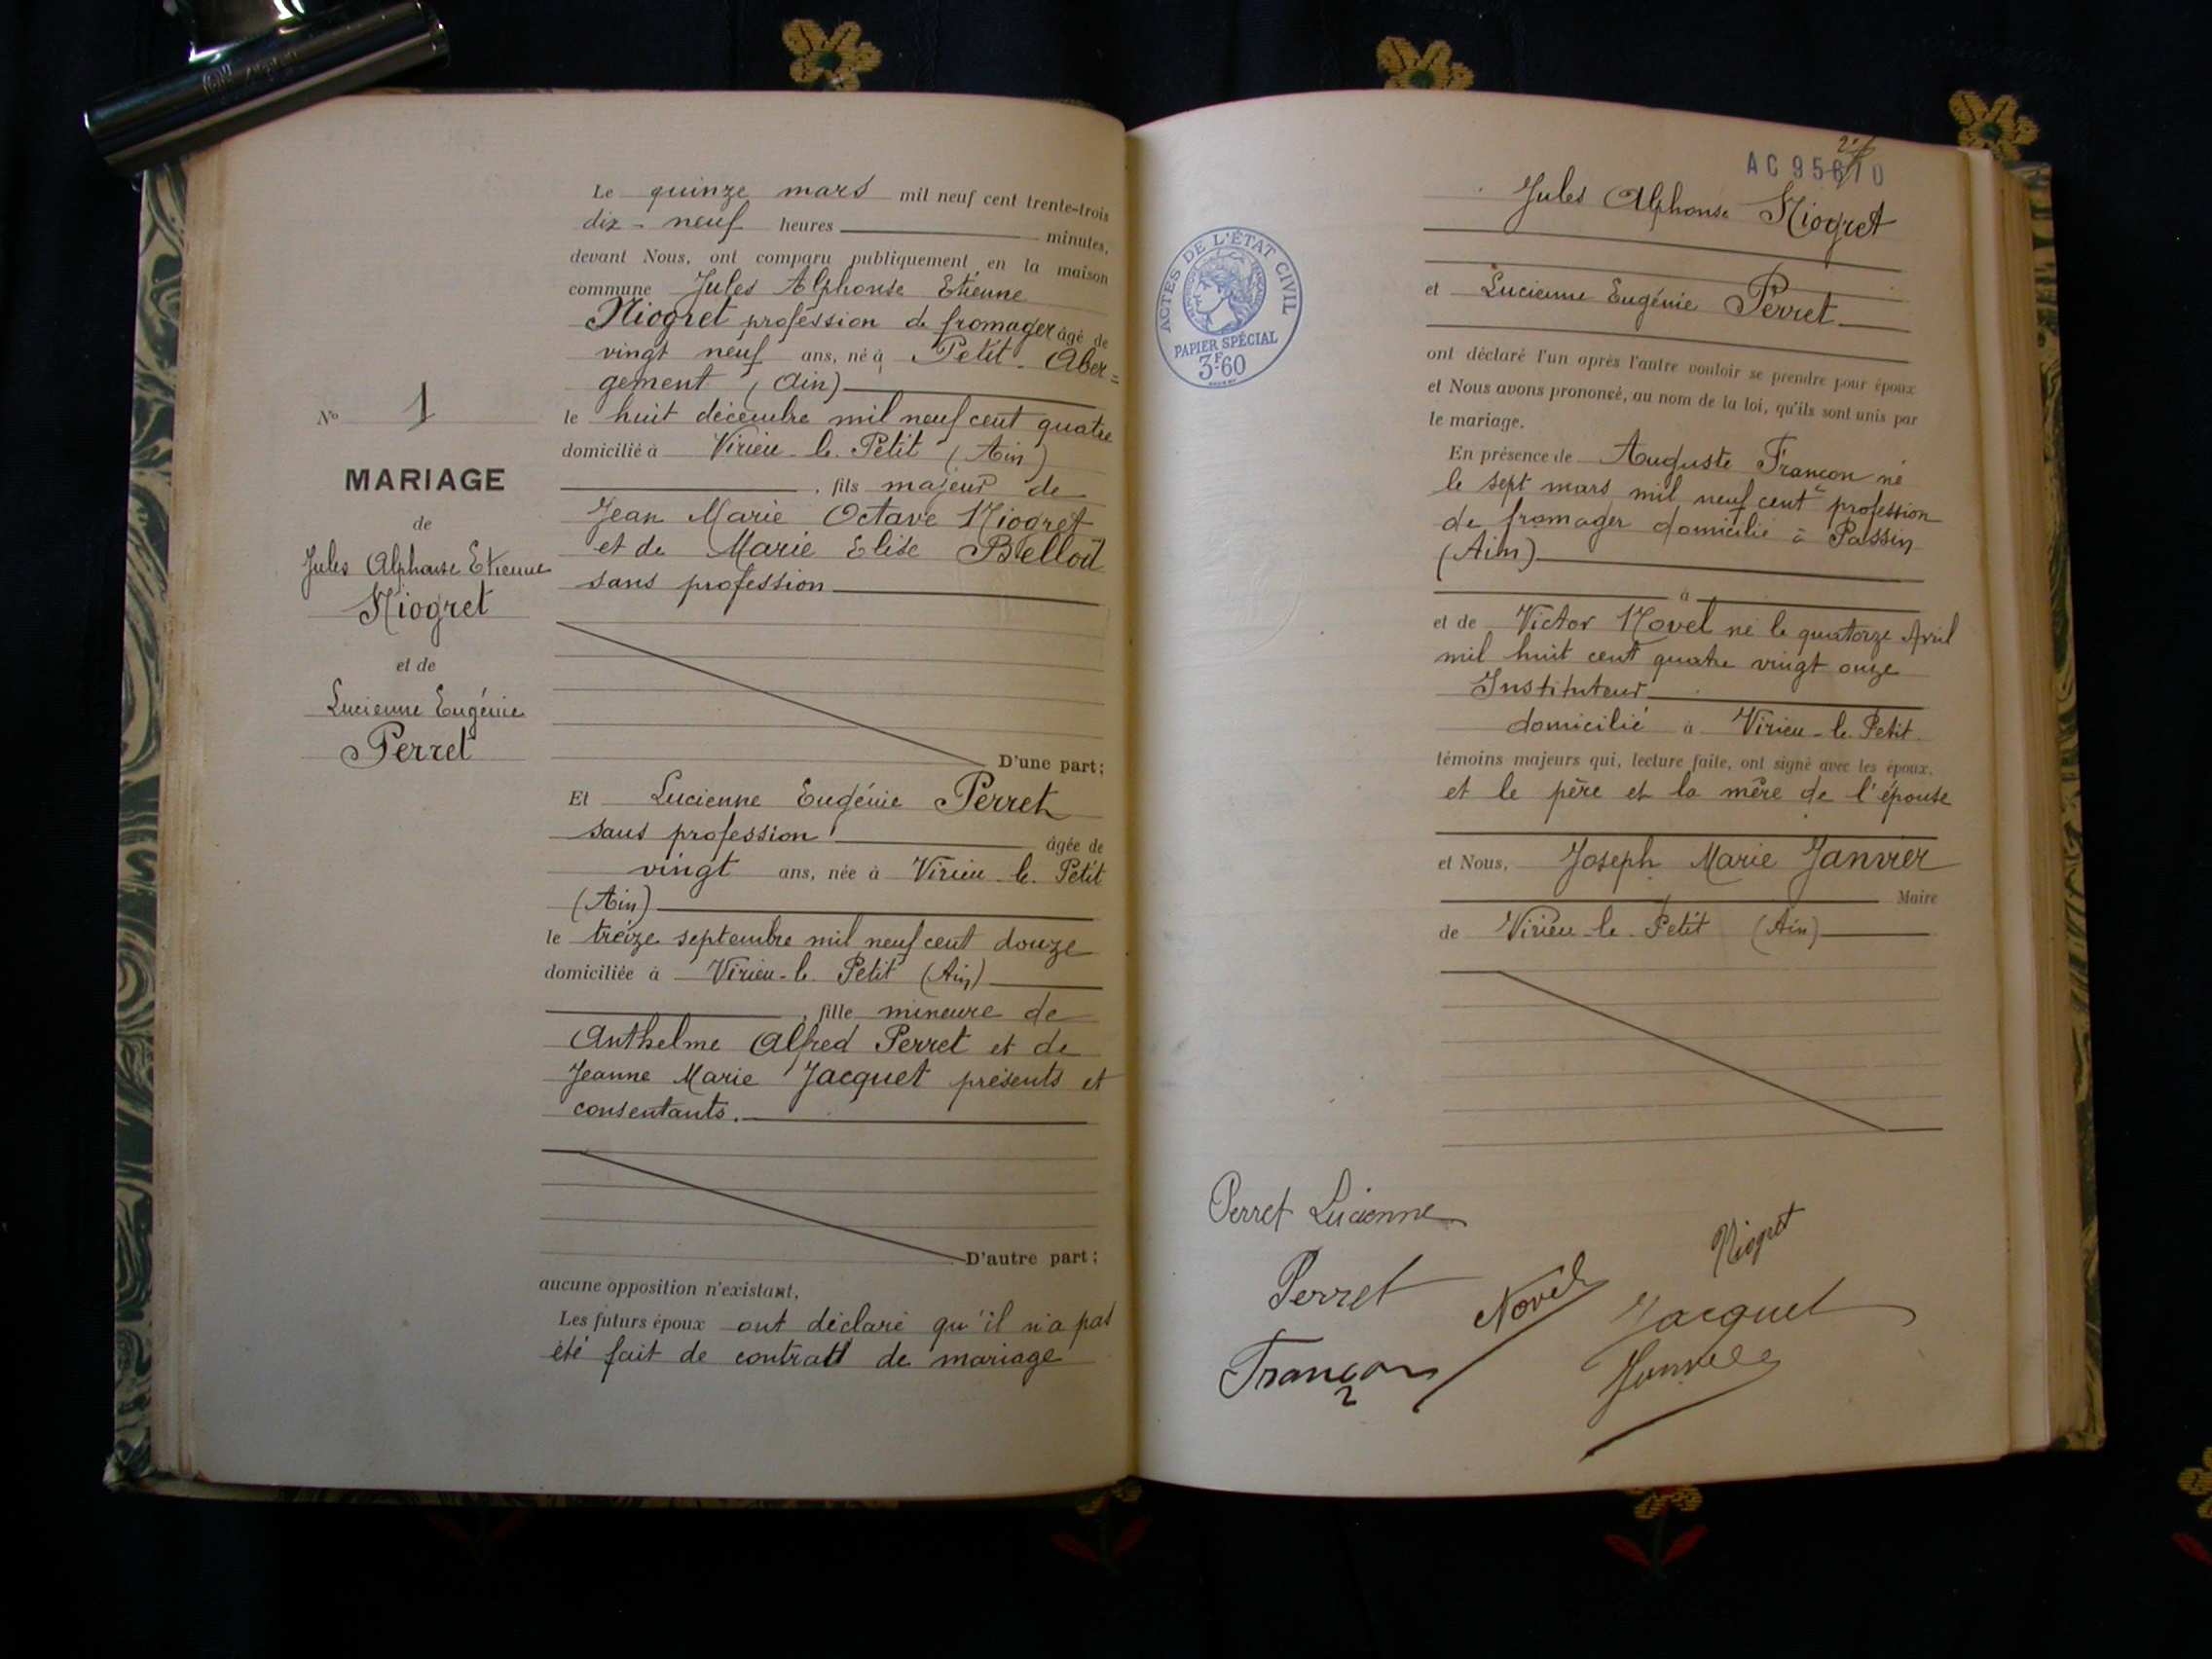 Le quinze mars mil neuf cent trente-trois
dix-neuf heures minutes,
devant Nous, ont comparu publiquement en la maison
commune Jules Alphonse Etienne
Niogret profession de fromager âgé de
vingt neuf ans, né à Petit-Aber=
gement (Ain)
le huit décembre mil neuf cent quatre
domicilié à Virieu-le-Petit (Ain)
, fils majeur de
Jean Marie Octave Niogret
et de Marie Elise Bellod
sans profession
D'une part;
No 1
MARIAGE
de
Jules Alphonse Etienne
Niogret
et de
Lucienne Eugénie
Perret
Et Lucienne Eugénie Perret
sans profession âgée de
vingt ans, née à Virieu-le-Petit
(Ain)
le treize septembre mil neuf cent douze
domiciliée à Virieu-le-Petit (Ain)
, fille mineure de
Anthelme Alfred Perret et de
Jeanne Marie Jacquet présents et
consentants.
D'autre part;
aucune opposition n'existant,
Les futurs époux ont déclaré qu'il n'a pas
été fait de contrat de mariage
AC 95610
Jules Alphonse Niogret
et Lucienne Eugénie Perret
ont déclaré l'un après l'autre vouloir se prendre pour époux
et Nous avons prononcé, au nom de la loi, qu'ils sont unis par
le mariage.
En présence de Auguste Françon né
le sept mars mil neuf cent profession
de fromager domicilié à Passin
(Ain)
à
et de Victor Novel né le quatorze Avril
mil huit cent quatre vingt onze
Instituteur
domicilié à Virieu-le-Petit
témoins majeurs qui, lecture faite, ont signé avec les époux.
et le père et la mère de l'épouse
et Nous, Joseph Marie Janvier
Maire
de Virieu-le-Petit (Ain)
ACTES DE L'ÉTAT CIVIL
PAPIER SPÉCIAL
3F60
Perret Lucienne
Niogret
Perret
Novel
Jacquet
Françon
Janvier